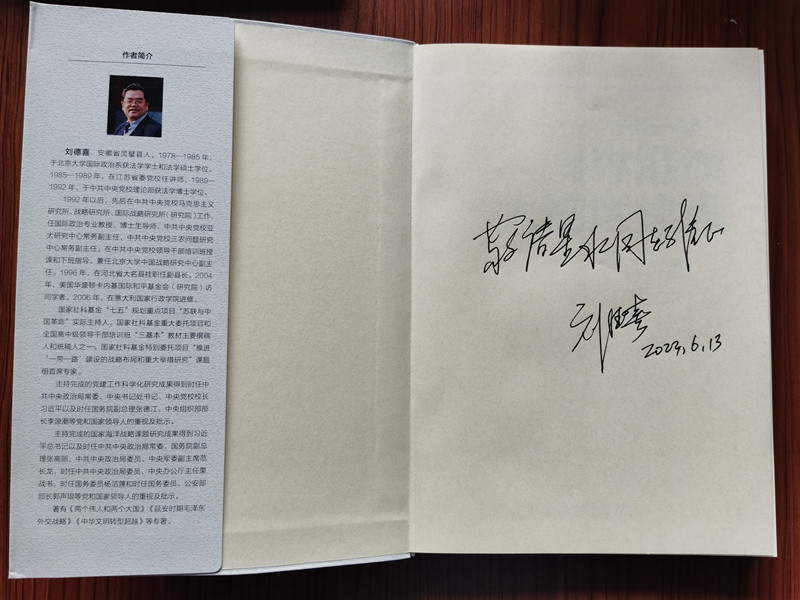 作者简介
刘德喜，安徽省灵璧县人。1978—1985年，
于北京大学国际政治系获法学学士和法学硕士学位。
1985—1989年，在江苏省委党校任讲师。1989—
1992年，于中共中央党校理论部获法学博士学位。
1992年以后，先后在中共中央党校马克思主义
研究所、战略研究所、国际战略研究所（研究院）工作，
任国际政治专业教授、博士生导师，中共中央党校亚
太研究中心常务副主任、中共中央党校三农问题研究
中心常务副主任。在中共中央党校领导干部培训班授
课和下班指导。兼任北京大学中国战略研究中心副主
任。1996年，在河北省大名县挂职任副县长。2004
年，美国华盛顿卡内基国际和平基金会（研究院）访
问学者。2006年，在意大利国家行政学院进修。
国家社科基金“七五”规划重点项目“苏联与中
国革命”实际主持人。国家社科基金重大委托项目和
全国高中级领导干部培训班“三基本”教材主要撰稿
人和统稿人之一。国家社科基金特别委托项目“推进
‘一带一路’建设的战略布局和重大举措研究”课题
组首席专家。
主持完成的党建工作科学化研究成果得到时任中
共中央政治局常委、中央书记处书记、中央党校校长
习近平以及时任国务院副总理张德江、中央组织部部
长李源潮等党和国家领导人的重视及批示。
主持完成的国家海洋战略课题研究成果得到习近
平总书记以及时任中共中央政治局常委、国务院副总
理张高丽，中共中央政治局委员、中央军委副主席范
长龙，时任中共中央政治局委员、中央办公厅主任栗
战书，时任国务委员杨洁篪和时任国务委员、公安部
部长郭声琨等党和国家领导人的重视及批示。
著有《两个伟人和两个大国》《延安时期毛泽东
外交战略》《中华文明转型超越》等专著。
同志雅正
刘德喜
2023,6,13